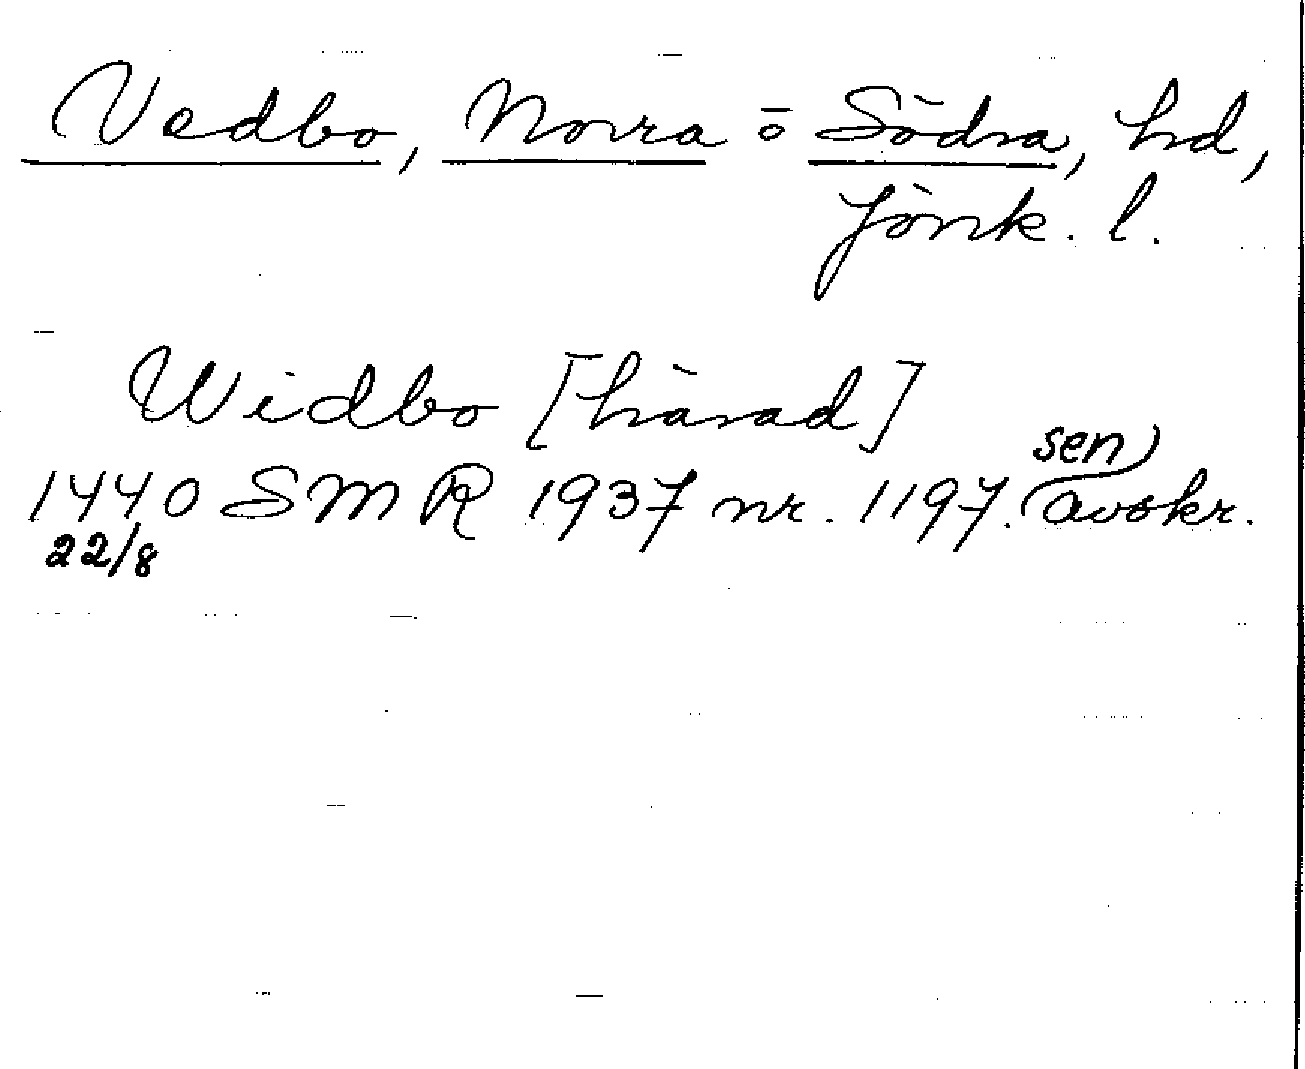 Vedbo, Norra o Södra, hd,
Jönk. l.
Widbo [härad]
sen
1440 SMR 1937 nr. 1197. avskr.
22/8